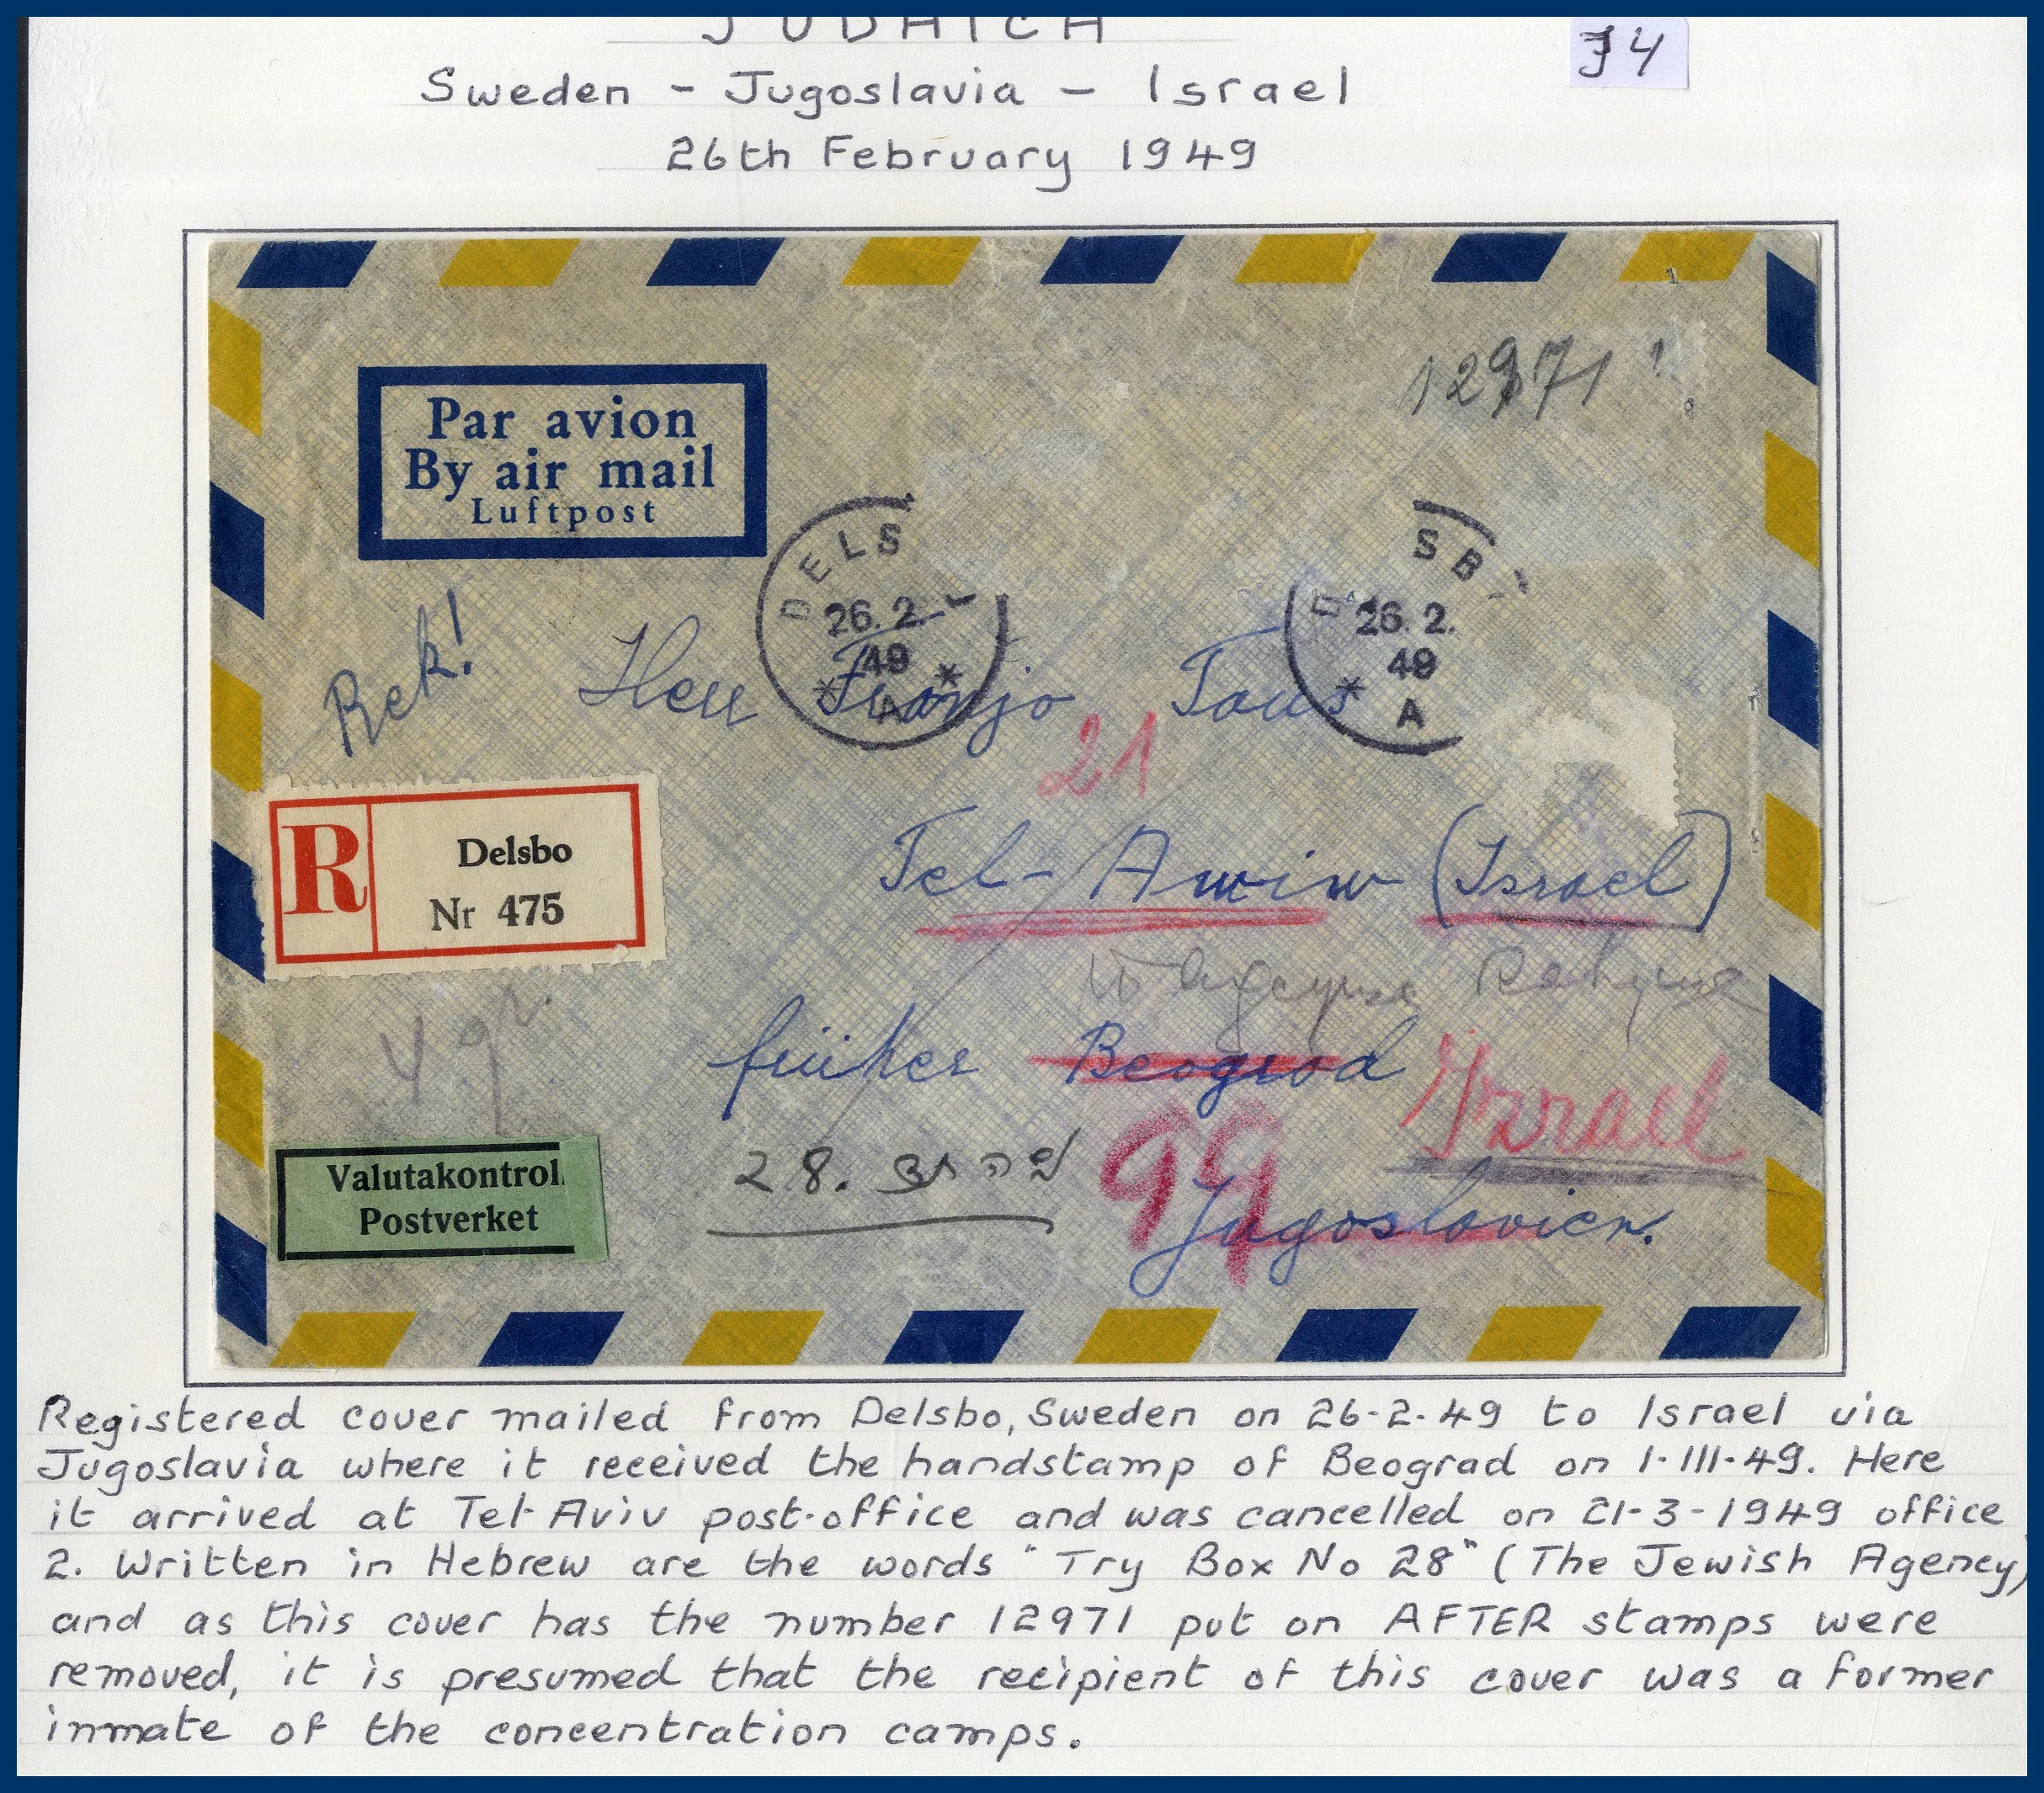 JUDAICA
J4
Sweden - Jugoslavia - Israel
26th February 1949
12971
Par avion
By air mail
Luftpost
DELS
26.2.
49
A
SB
26.2.
49
A
Rek!
Herr Franjo Taus
21
R
Delsbo
Nr 475
Tel-Awiw (Israel)
früher Beograd
Izrael
49
Valutakontroll
Postverket
28.
99
Jugoslavien.
Registered cover mailed from Delsbo, Sweden on 26-2-49 to Israel via
Jugoslavia where it received the handstamp of Beograd on 1-III-49. Here
it arrived at Tel-Aviv post-office and was cancelled on 21-3-1949 office
2. Written in Hebrew are the words "Try Box No 28" (The Jewish Agency)
and as this cover has the number 12971 put on AFTER stamps were
removed, it is presumed that the recipient of this cover was a former
inmate of the concentration camps.